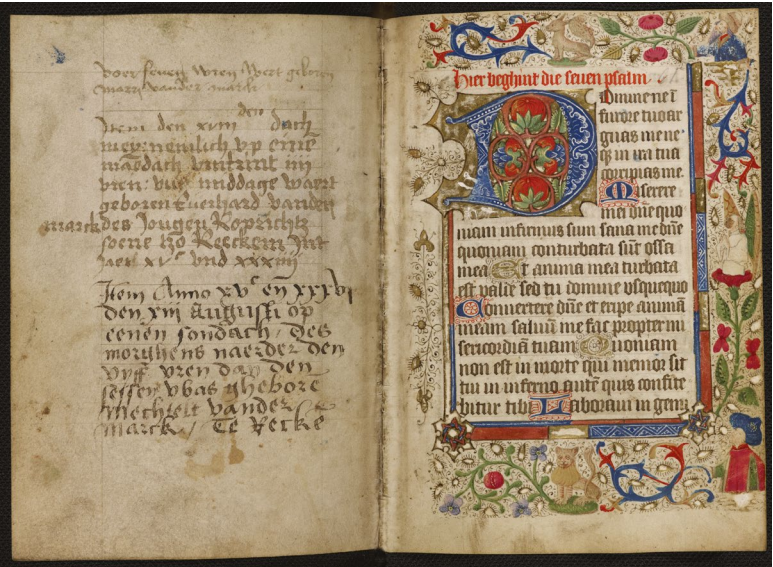 voer seven vren wert geboren
mary vander mark
den
Item den xviii dach
mey nemlich vp eme
maedach vmtrint iiii
vren vus middage waert
geboren Everhard vanden
marck des Jougen Roprichtz
soene tzo Reeckem Int
Jaer xvc vnd xxxiiii
Item Anno xvc en xxxvi
den xiii Augusti op
eenen sondach des
morghens naerder den
vyff vren dan den
sessen vbas ghebore
mechtelt vander
marck / Te Recke
Hier beghint die seuen psalm
Domine ne ī
furore tuo ar
guas me ne
qꝫ in ira tua
corripias me
Miserere
mei dn̄e quo
niam infirmus sum sana me dn̄e
quoniam conturbata sūt ossa
mea Et anima mea turbata
est valde sed tu domine vsquequo
Conuertere dn̄e et eripe animā
meam saluū me fac propter mi
sericordiā tuam Quoniam
non est in morte qui memor sit
tui in inferno autē quis confite
bitur tibi Laboraui in gemi